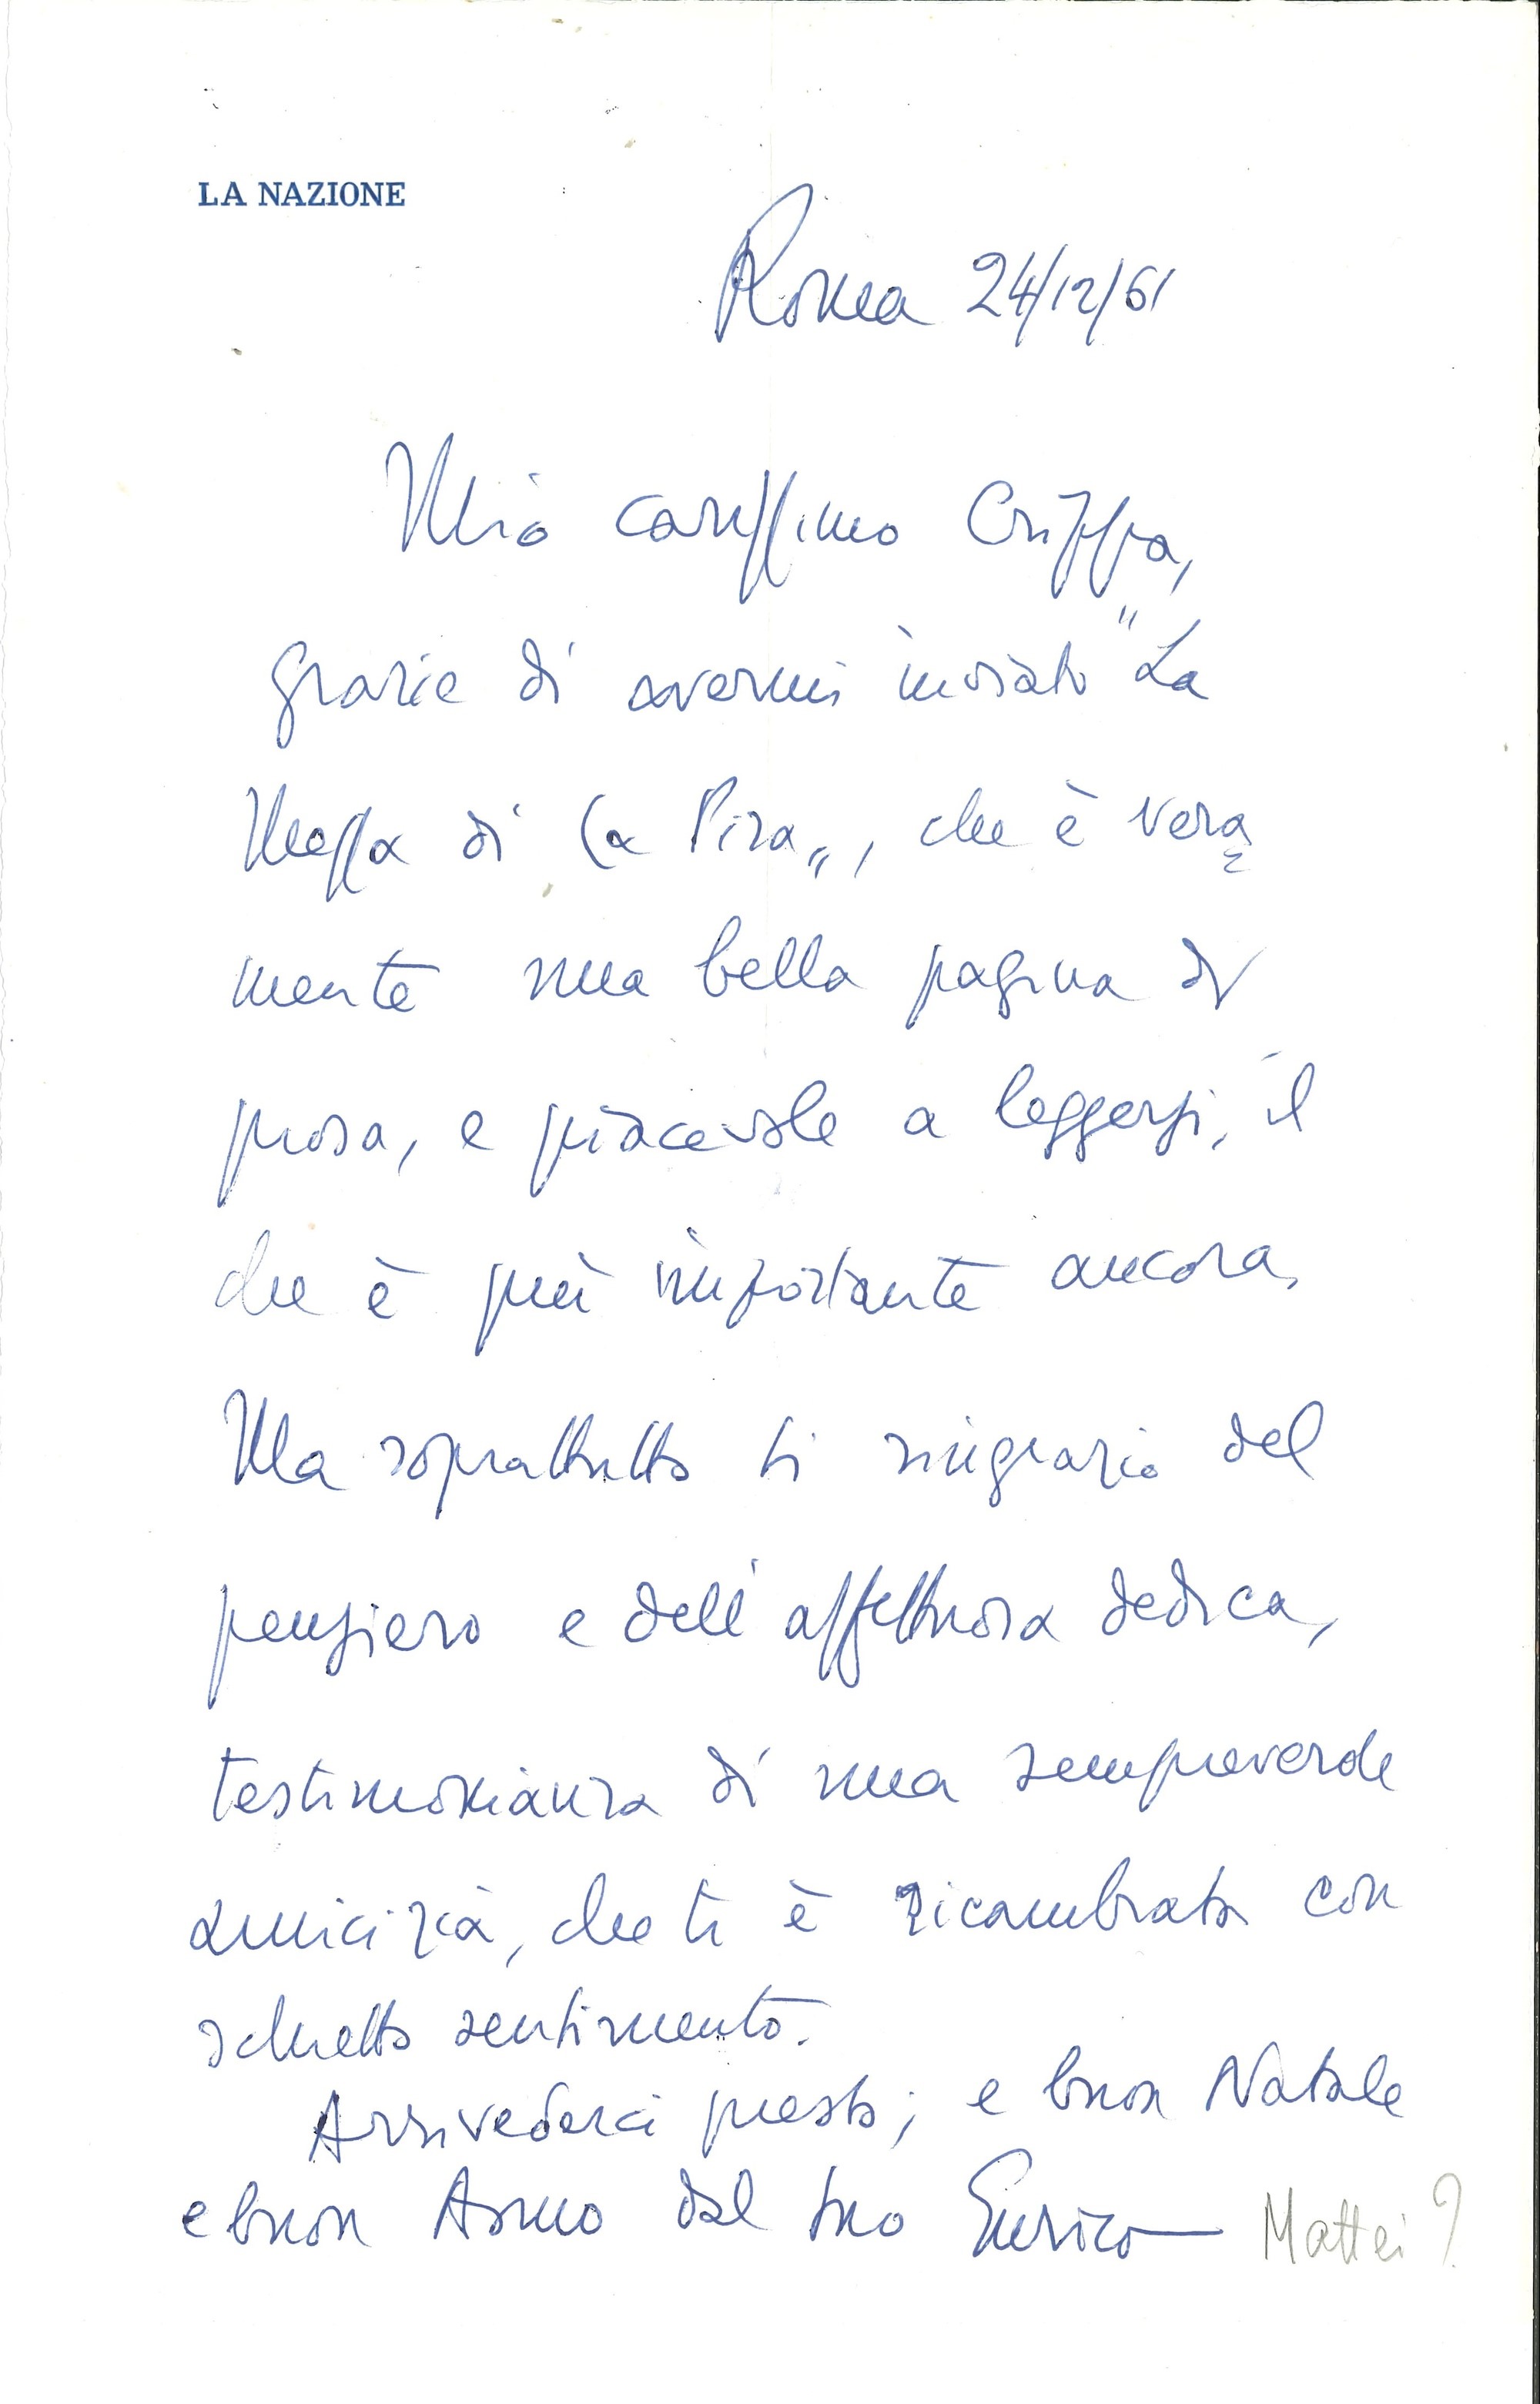 LA NAZIONE
Roma 24/12/61
Mio carissimo Crippa,
grazie di avermi inviato "La
Messa di La Pira", che è vera=
mente una bella pagina di
prosa, e piacevole a leggersi, il
che è più importante ancora.
Ma soprattutto ti ringrazio del
pensiero e dell'affettuosa dedica,
testimonianza di una sempreverde
amicizia, che ti è ricambiata con
schietto sentimento.
Arrivederci presto; e buon Natale
e buon Anno dal tuo Enrico Mattei?